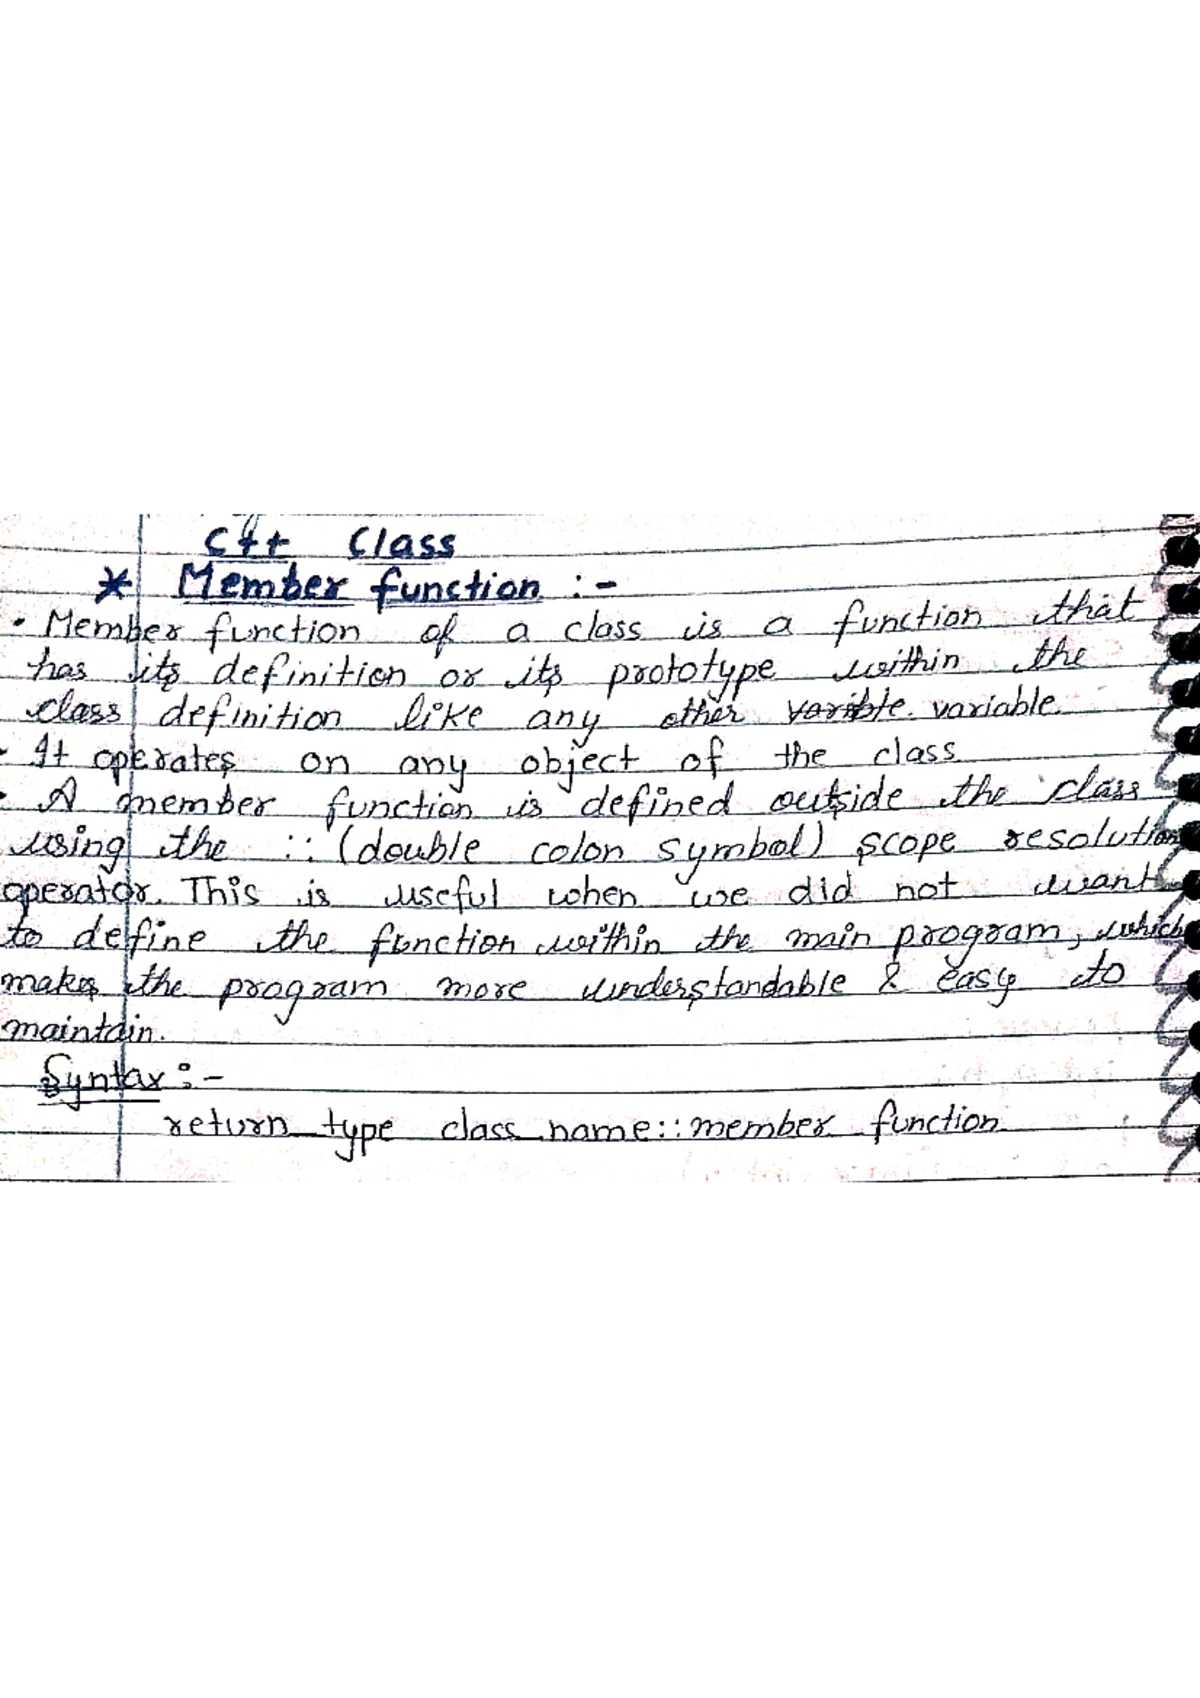 C++ Class
* Member function :-
• Member function of a class is a function that
has its definition or its prototype within the
class definition like any other varible. variable.
• It operates on any object of the class
• A member function is defined outside the class
using the :: (double colon symbol) scope resolution
operator. This is useful when we did not want
to define the function within the main program, which
makes the program more understandable & easy to
maintain.
Syntax :-
return type class name::member function